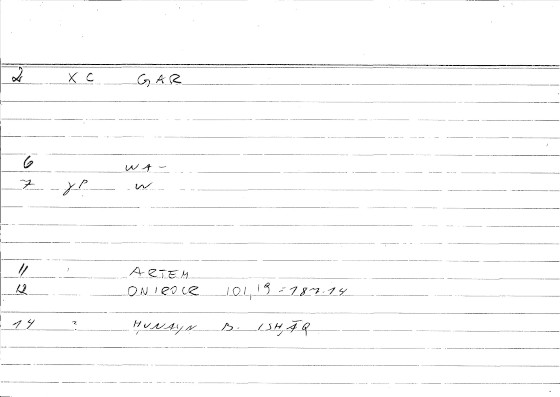 2 XC GAR
6 WA-
7 γρ W
11 ARTEM
12 ONIROCR 101,19 = 187.14
14 ḤUNAYN B. ISḤĀQ